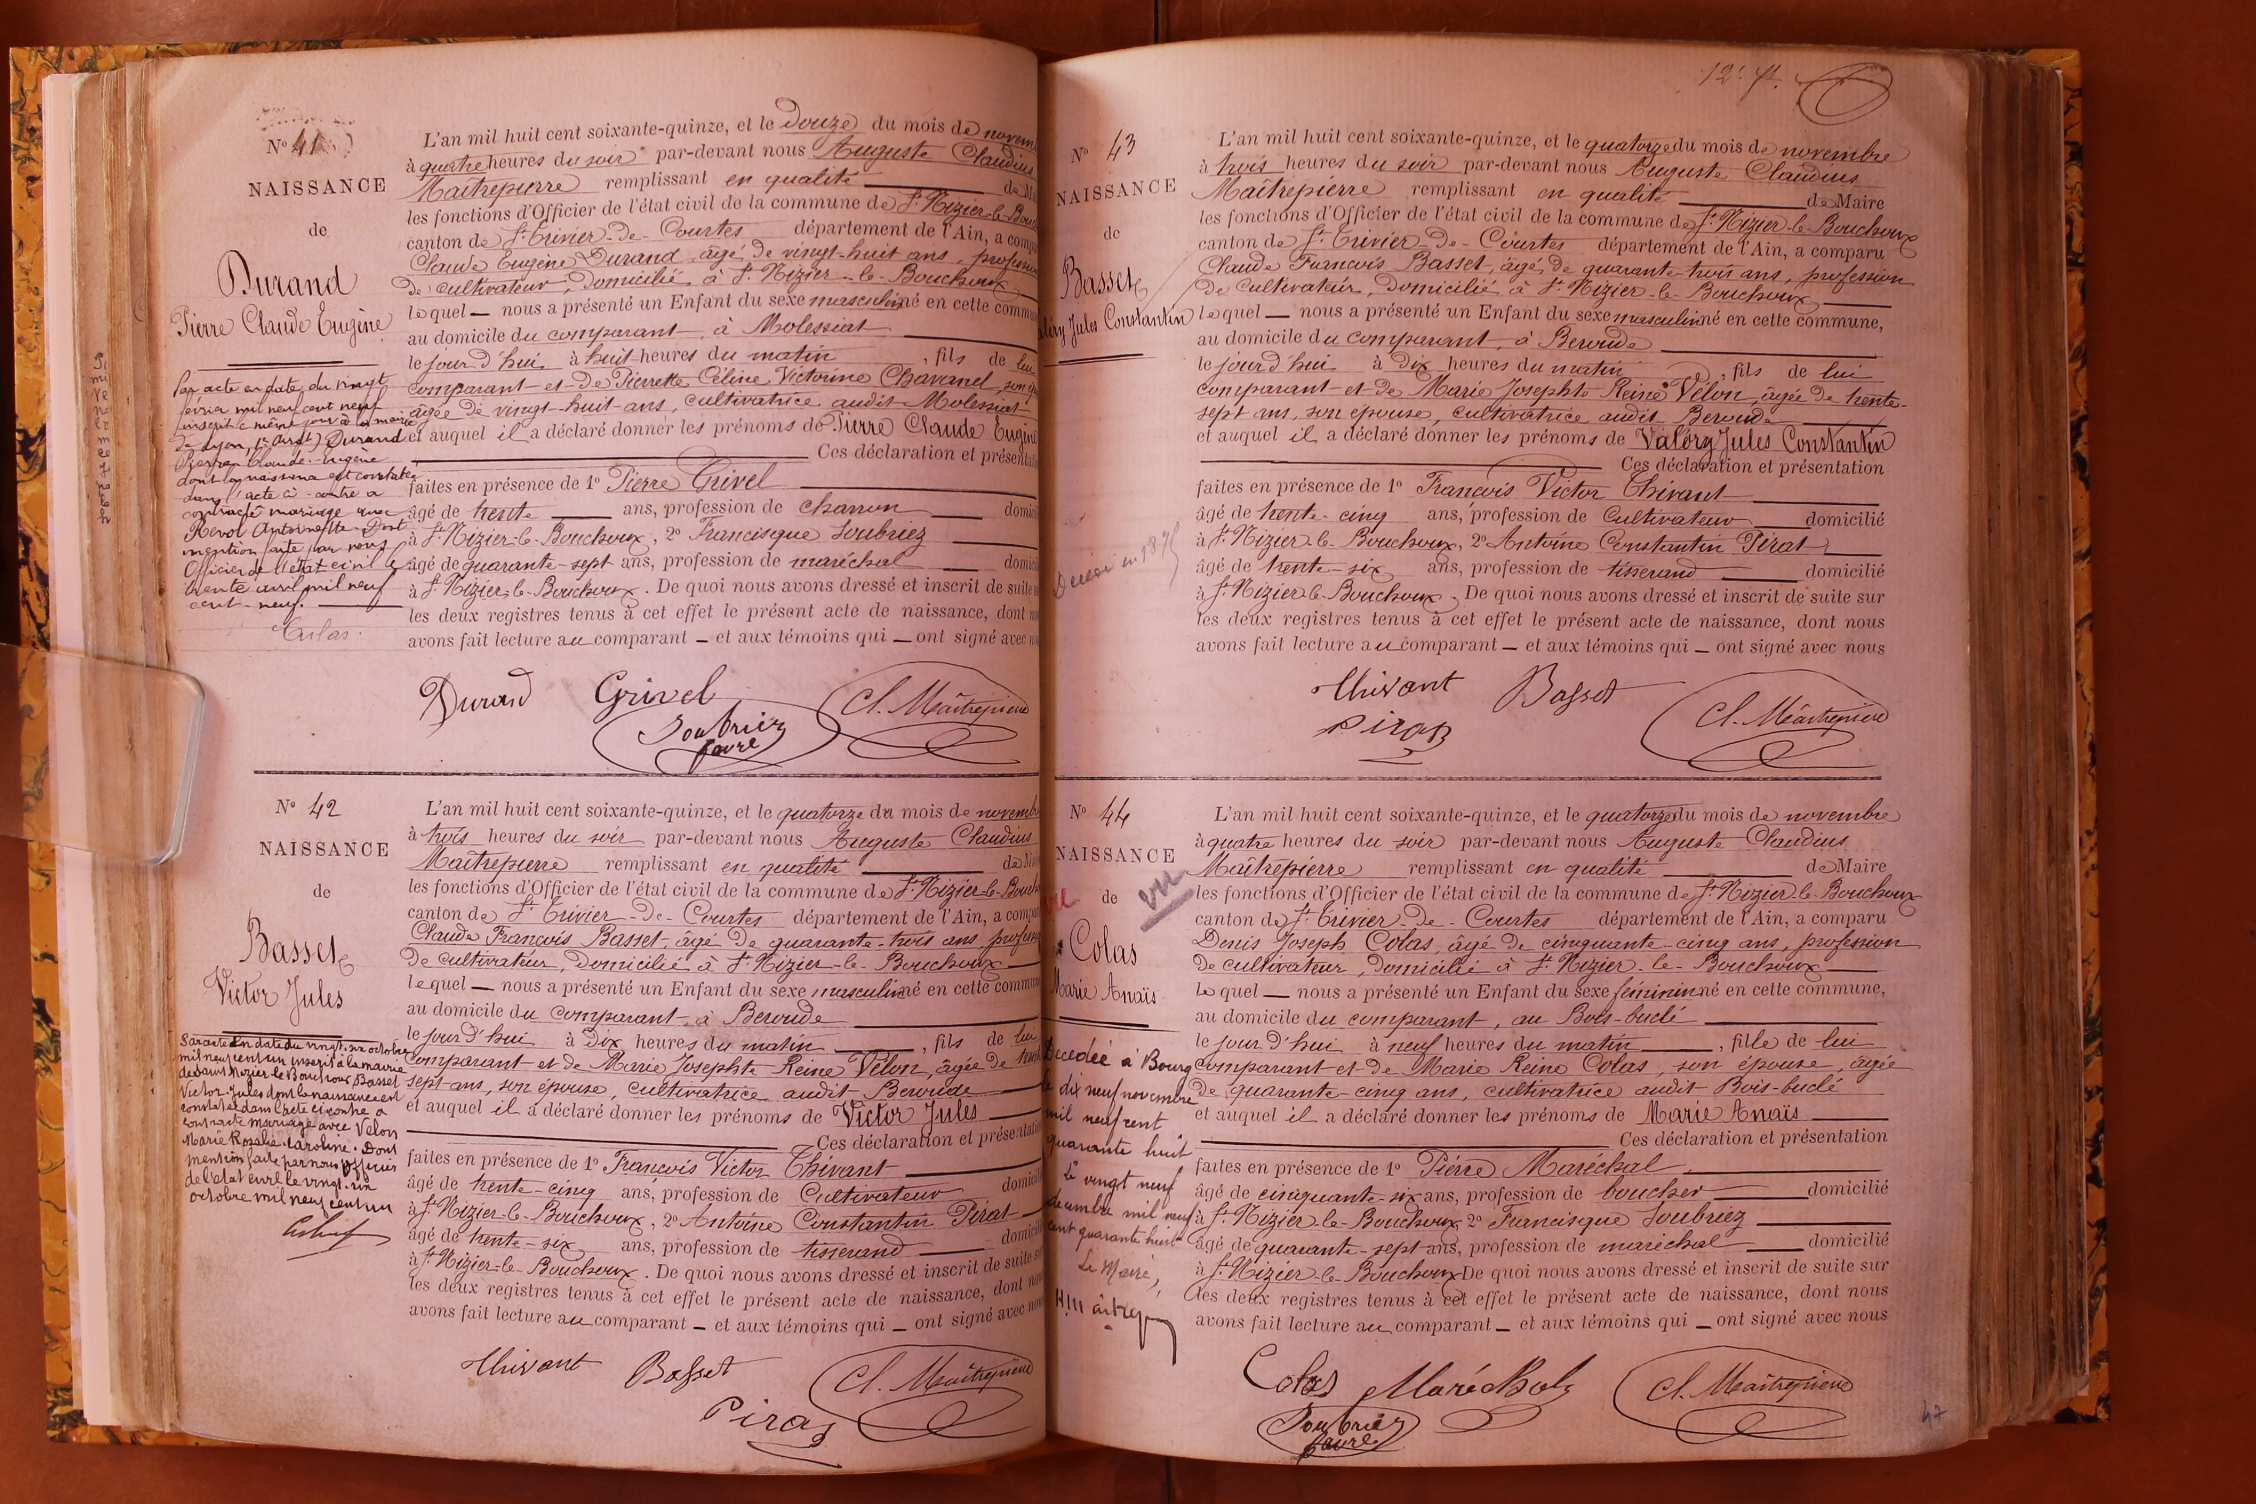 N° 41
NAISSANCE
de
Durand
Pierre Claude Eugène
Par acte en date du vingt
février mil neuf cent neuf
inscrit le même jour à la mairie
de Lyon, (1er Arrdt) Durand
Pierre Claude-Eugène
dont la naissance est constatée
dans l'acte ci-contre a
contracté mariage avec
Revol Antoinette. Dont
mention faite par nous
Officier de l'état civil le
trente avril mil neuf
cent-neuf.
L'an mil huit cent soixante-quinze, et le douze du mois de novem
à quatre heures du soir par-devant nous Auguste Claudius
Maîtrepierre remplissant en qualité de M
les fonctions d'Officier de l'état civil de la commune de St Nizier-le-Bou
canton de St Trivier-de-Courtes département de l'Ain, a comp
Claude Eugène Durand âgé de vingt-huit ans, profession
de cultivateur, domicilié à St Nizier-le-Bouchoux
lequel — nous a présenté un Enfant du sexe masculin né en cette commune
au domicile du comparant, à Molessiat
le jour d'hui à huit heures du matin, fils de lui
comparant et de Pierrette Céline Victorine Chavanel, son ép
âgée de vingt-huit ans, cultivatrice audit Molessiat
et auquel il a déclaré donner les prénoms de Pierre Claude Eugène
Ces déclaration et présentation
faites en présence de 1° Pierre Grivel
âgé de trente ans, profession de charron domici
à St Nizier-le-Bouchoux, 2° Francisque Soubriez
âgé de quarante-sept ans, profession de maréchal domici
à St Nizier-le-Bouchoux. De quoi nous avons dressé et inscrit de suite
les deux registres tenus à cet effet le présent acte de naissance, dont n
avons fait lecture au comparant — et aux témoins qui — ont signé avec n
Durand Grivel Cl. Maîtrepierre
Soubriez
favre
N° 42
NAISSANCE
de
Basset
Victor Jules
Par acte en date du vingt-six octobre
mil neuf cent un inscrit à la mairie
de Saint Nizier le Bouchoux, Basset
Victor-Jules dont la naissance est
constatée dans l'acte ci contre a
contracté mariage avec Velon
Marie Rosalie Caroline. Dont
mention faite par nous Officier
de l'état civil le vingt-six
octobre mil neuf cent un
L'an mil huit cent soixante-quinze, et le quatorze du mois de novemb
à trois heures du soir par-devant nous Auguste Claudius
Maîtrepierre remplissant en qualité de M
les fonctions d'Officier de l'état civil de la commune de St Nizier-le-Bouch
canton de St Trivier-de-Courtes département de l'Ain, a compa
Claude François Basset, âgé de quarante-trois ans, profess
de cultivateur, domicilié à St Nizier-le-Bouchoux
lequel — nous a présenté un Enfant du sexe masculin né en cette commun
au domicile du comparant à Beroude
le jour d'hui à dix heures du matin, fils de lui
comparant et de Marie Josephte Reine Vélon, âgée de trente
sept ans, son épouse, cultivatrice audit Beroude
et auquel il a déclaré donner les prénoms de Victor Jules
Ces déclaration et présentation
faites en présence de 1° François Victor Thivant
âgé de trente-cinq ans, profession de Cultivateur domicili
à St Nizier-le-Bouchoux, 2° Antoine Constantin Pirat
âgé de trente-six ans, profession de tisserand domicili
à St Nizier-le-Bouchoux. De quoi nous avons dressé et inscrit de suite s
les deux registres tenus à cet effet le présent acte de naissance, dont nou
avons fait lecture au comparant — et aux témoins qui — ont signé avec nou
Thivant Basset Cl. Maîtrepierre
Pirat
N° 43
NAISSANCE
de
Basset
Valéry Jules Constantin
Décédé en 1875
L'an mil huit cent soixante-quinze, et le quatorze du mois de novembre
à trois heures du soir par-devant nous Auguste Claudius
Maîtrepierre remplissant en qualité de Maire
les fonctions d'Officier de l'état civil de la commune de St Nizier-le-Bouchoux
canton de St Trivier-de-Courtes département de l'Ain, a comparu
Claude François Basset, âgé de quarante-trois ans, profession
de cultivateur, domicilié à St Nizier-le-Bouchoux
lequel — nous a présenté un Enfant du sexe masculin né en cette commune,
au domicile du comparant, à Beroude
le jour d'hui à dix heures du matin, fils de lui
comparant et de Marie Josephte Reine Vélon, âgée de trente-
sept ans, son épouse, cultivatrice audit Beroude
et auquel il a déclaré donner les prénoms de Valéry Jules Constantin
Ces déclaration et présentation
faites en présence de 1° François Victor Thivant
âgé de trente-cinq ans, profession de Cultivateur domicilié
à St Nizier-le-Bouchoux, 2° Antoine Constantin Pirat
âgé de trente-six ans, profession de tisserand domicilié
à St Nizier-le-Bouchoux. De quoi nous avons dressé et inscrit de suite sur
les deux registres tenus à cet effet le présent acte de naissance, dont nous
avons fait lecture au comparant — et aux témoins qui — ont signé avec nous
Thivant Basset Cl. Maîtrepierre
Pirat
N° 44
NAISSANCE
de
Colas
Marie Anaïs
Décédée à Bourg
le dix neuf novembre
mil neuf cent
quarante huit
Le vingt neuf
décembre mil neuf
cent quarante huit
Le Maire,
L'an mil huit cent soixante-quinze, et le quatorze du mois de novembre
à quatre heures du soir par-devant nous Auguste Claudius
Maîtrepierre remplissant en qualité de Maire
les fonctions d'Officier de l'état civil de la commune de St Nizier-le-Bouchoux
canton de St Trivier-de-Courtes département de l'Ain, a comparu
Denis Joseph Colas, âgé de cinquante-cinq ans, profession
de cultivateur, domicilié à St Nizier-le-Bouchoux
lequel — nous a présenté un Enfant du sexe féminin né en cette commune,
au domicile du comparant, au Bois-buclé
le jour d'hui à neuf heures du matin, fille de lui
comparant et de Marie Reine Colas, son épouse, âgée
de quarante-cinq ans, cultivatrice audit Bois-buclé
et auquel il a déclaré donner les prénoms de Marie Anaïs
Ces déclaration et présentation
faites en présence de 1° Pierre Maréchal
âgé de cinquante-six ans, profession de boucher domicilié
à St Nizier-le-Bouchoux, 2° Francisque Soubriez
âgé de quarante-sept ans, profession de maréchal domicilié
à St Nizier-le-Bouchoux De quoi nous avons dressé et inscrit de suite sur
les deux registres tenus à cet effet le présent acte de naissance, dont nous
avons fait lecture au comparant — et aux témoins qui — ont signé avec nous
Colas Maréchal Cl. Maîtrepierre
Soubriez
favre
47